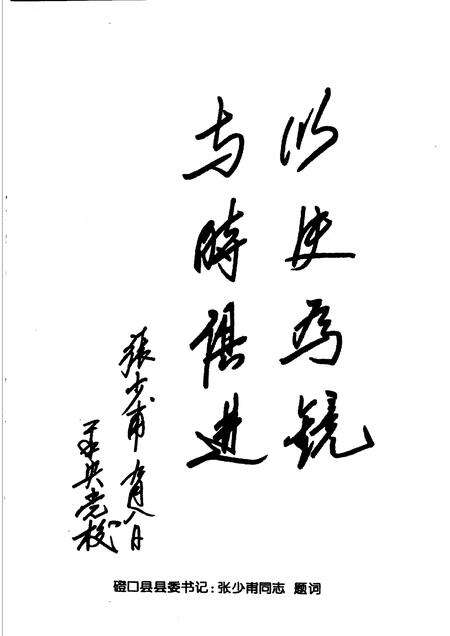 以史为镜
与時俱进
張少甫 月八日
于中央党校
磴口县县委书记：张少甫同志 题词